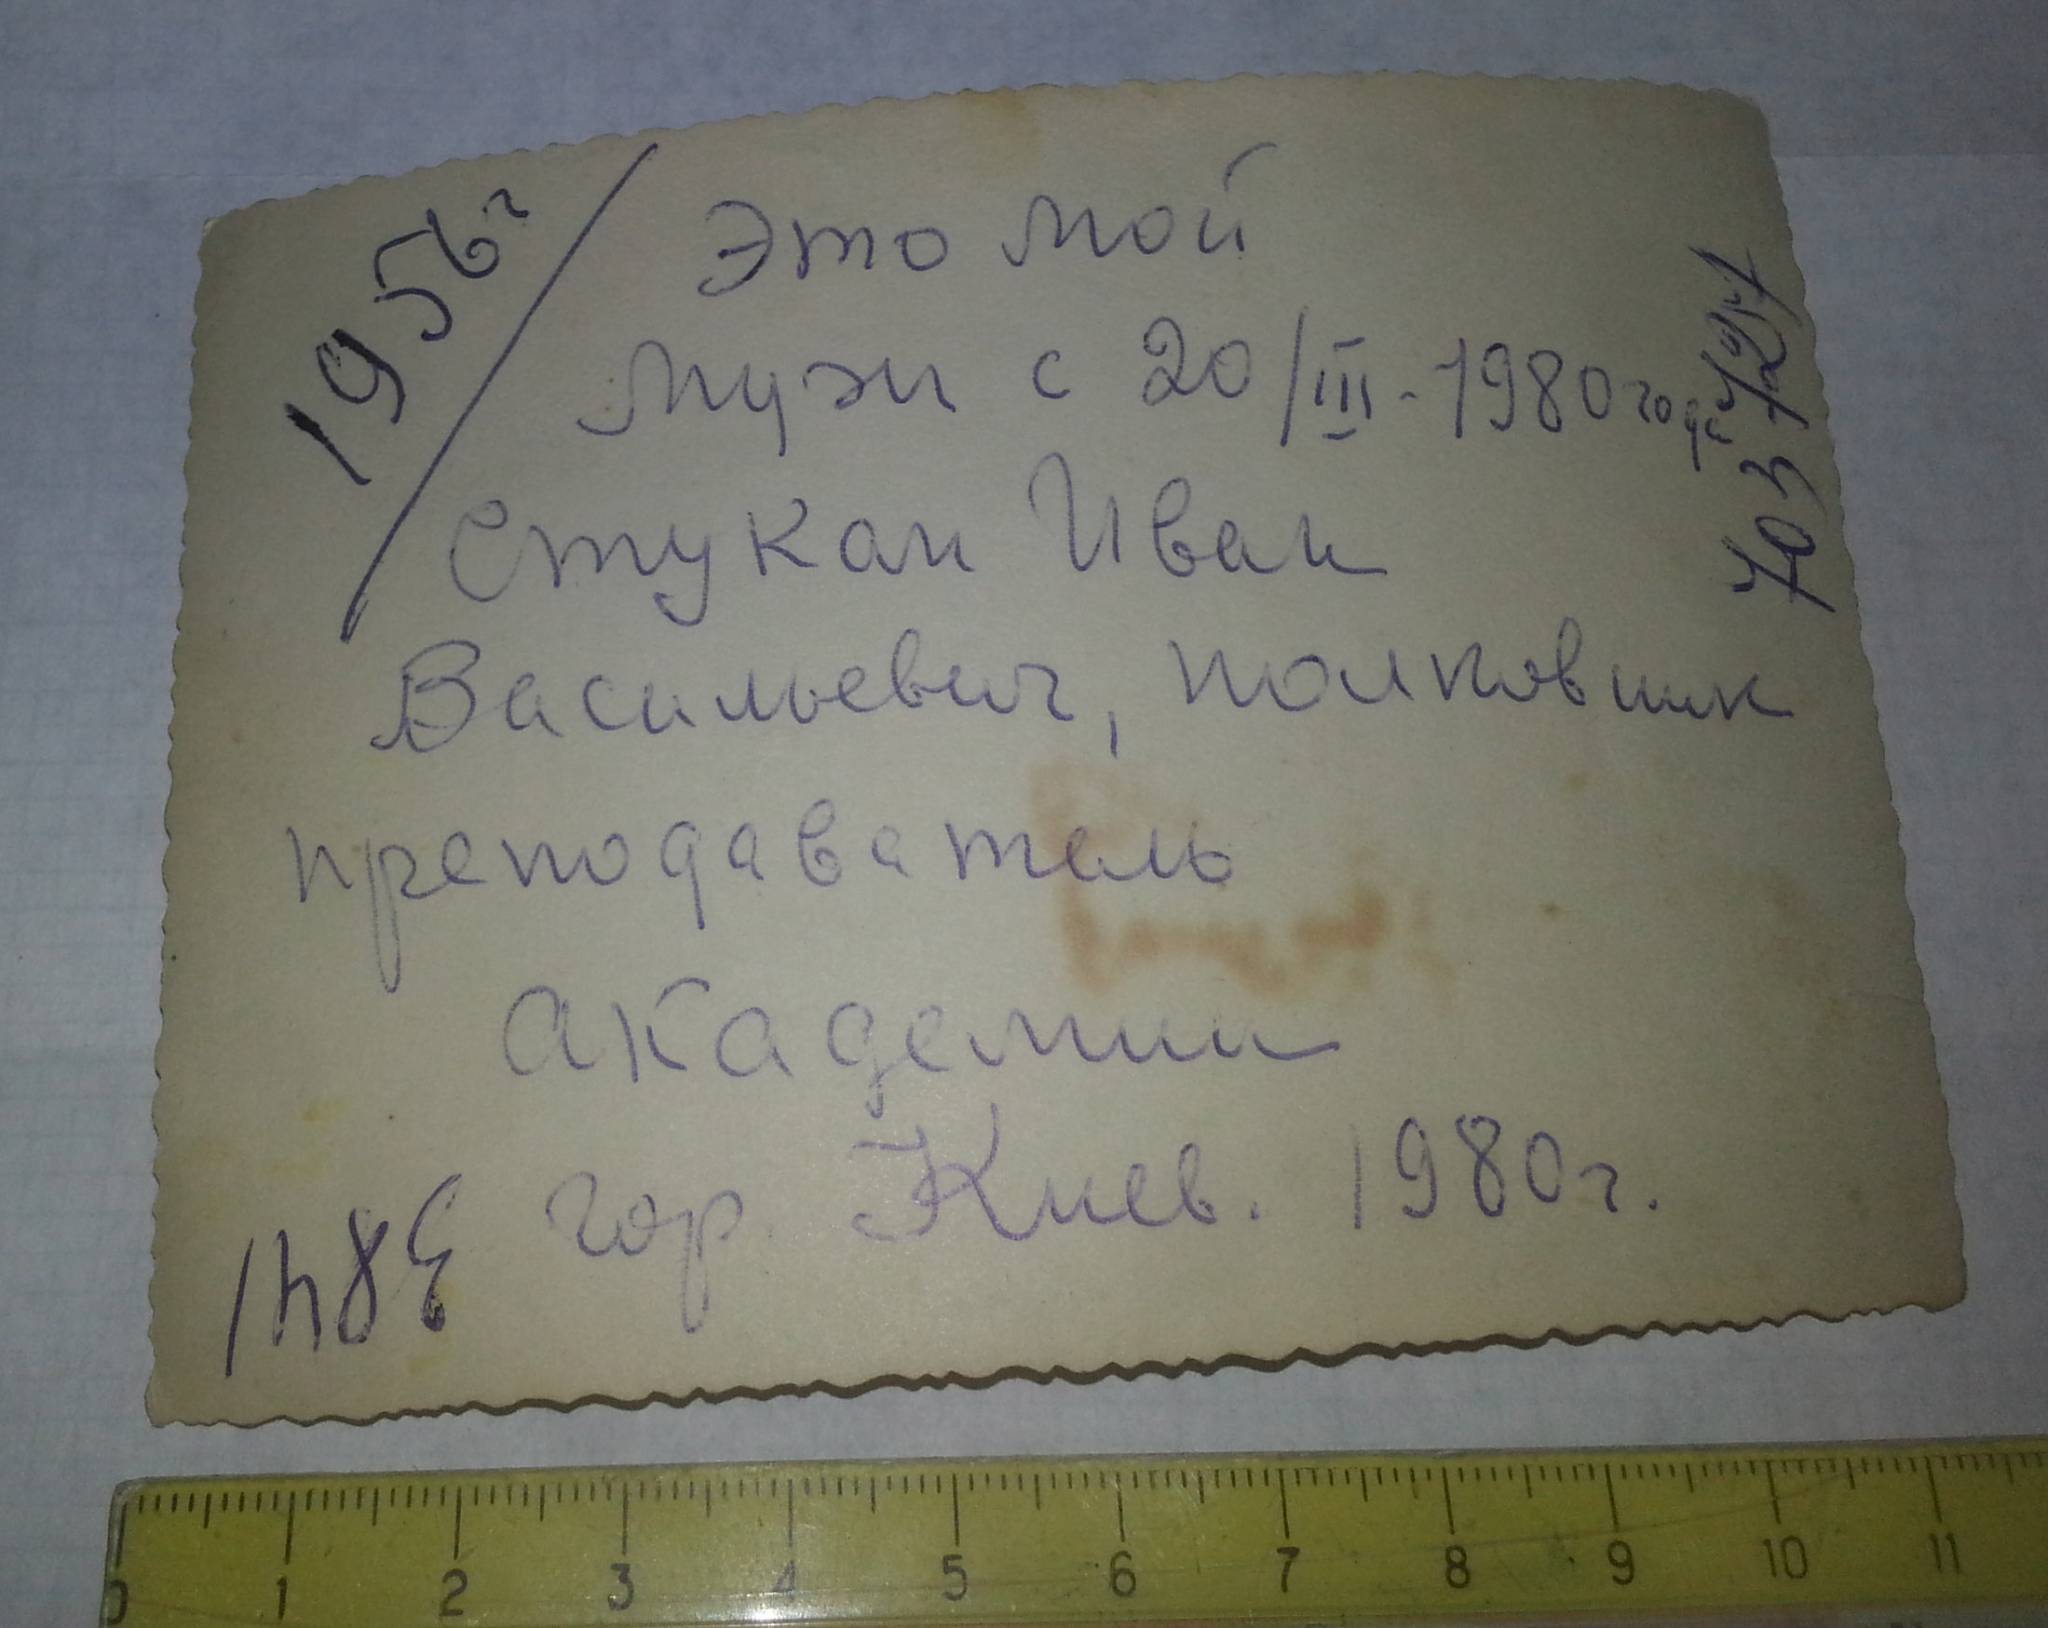 1956г
Это мой
муж с 20/III-1980года
Стукан Иван
Васильевич, полковник
преподаватель
Академии
гор. Киев. 1980г.
0 1 2 3 4 5 6 7 8 9 10 11